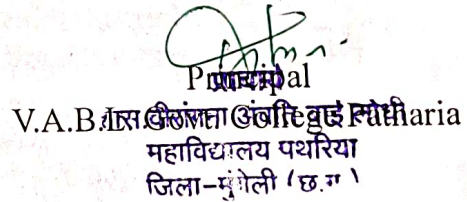 Principal
प्राचार्य
V.A.B.L. Govt. College Patharia
शास. वीरांगना अवंति बाई लोधी
महाविद्यालय पथरिया
जिला-मुंगेली (छ.ग.)